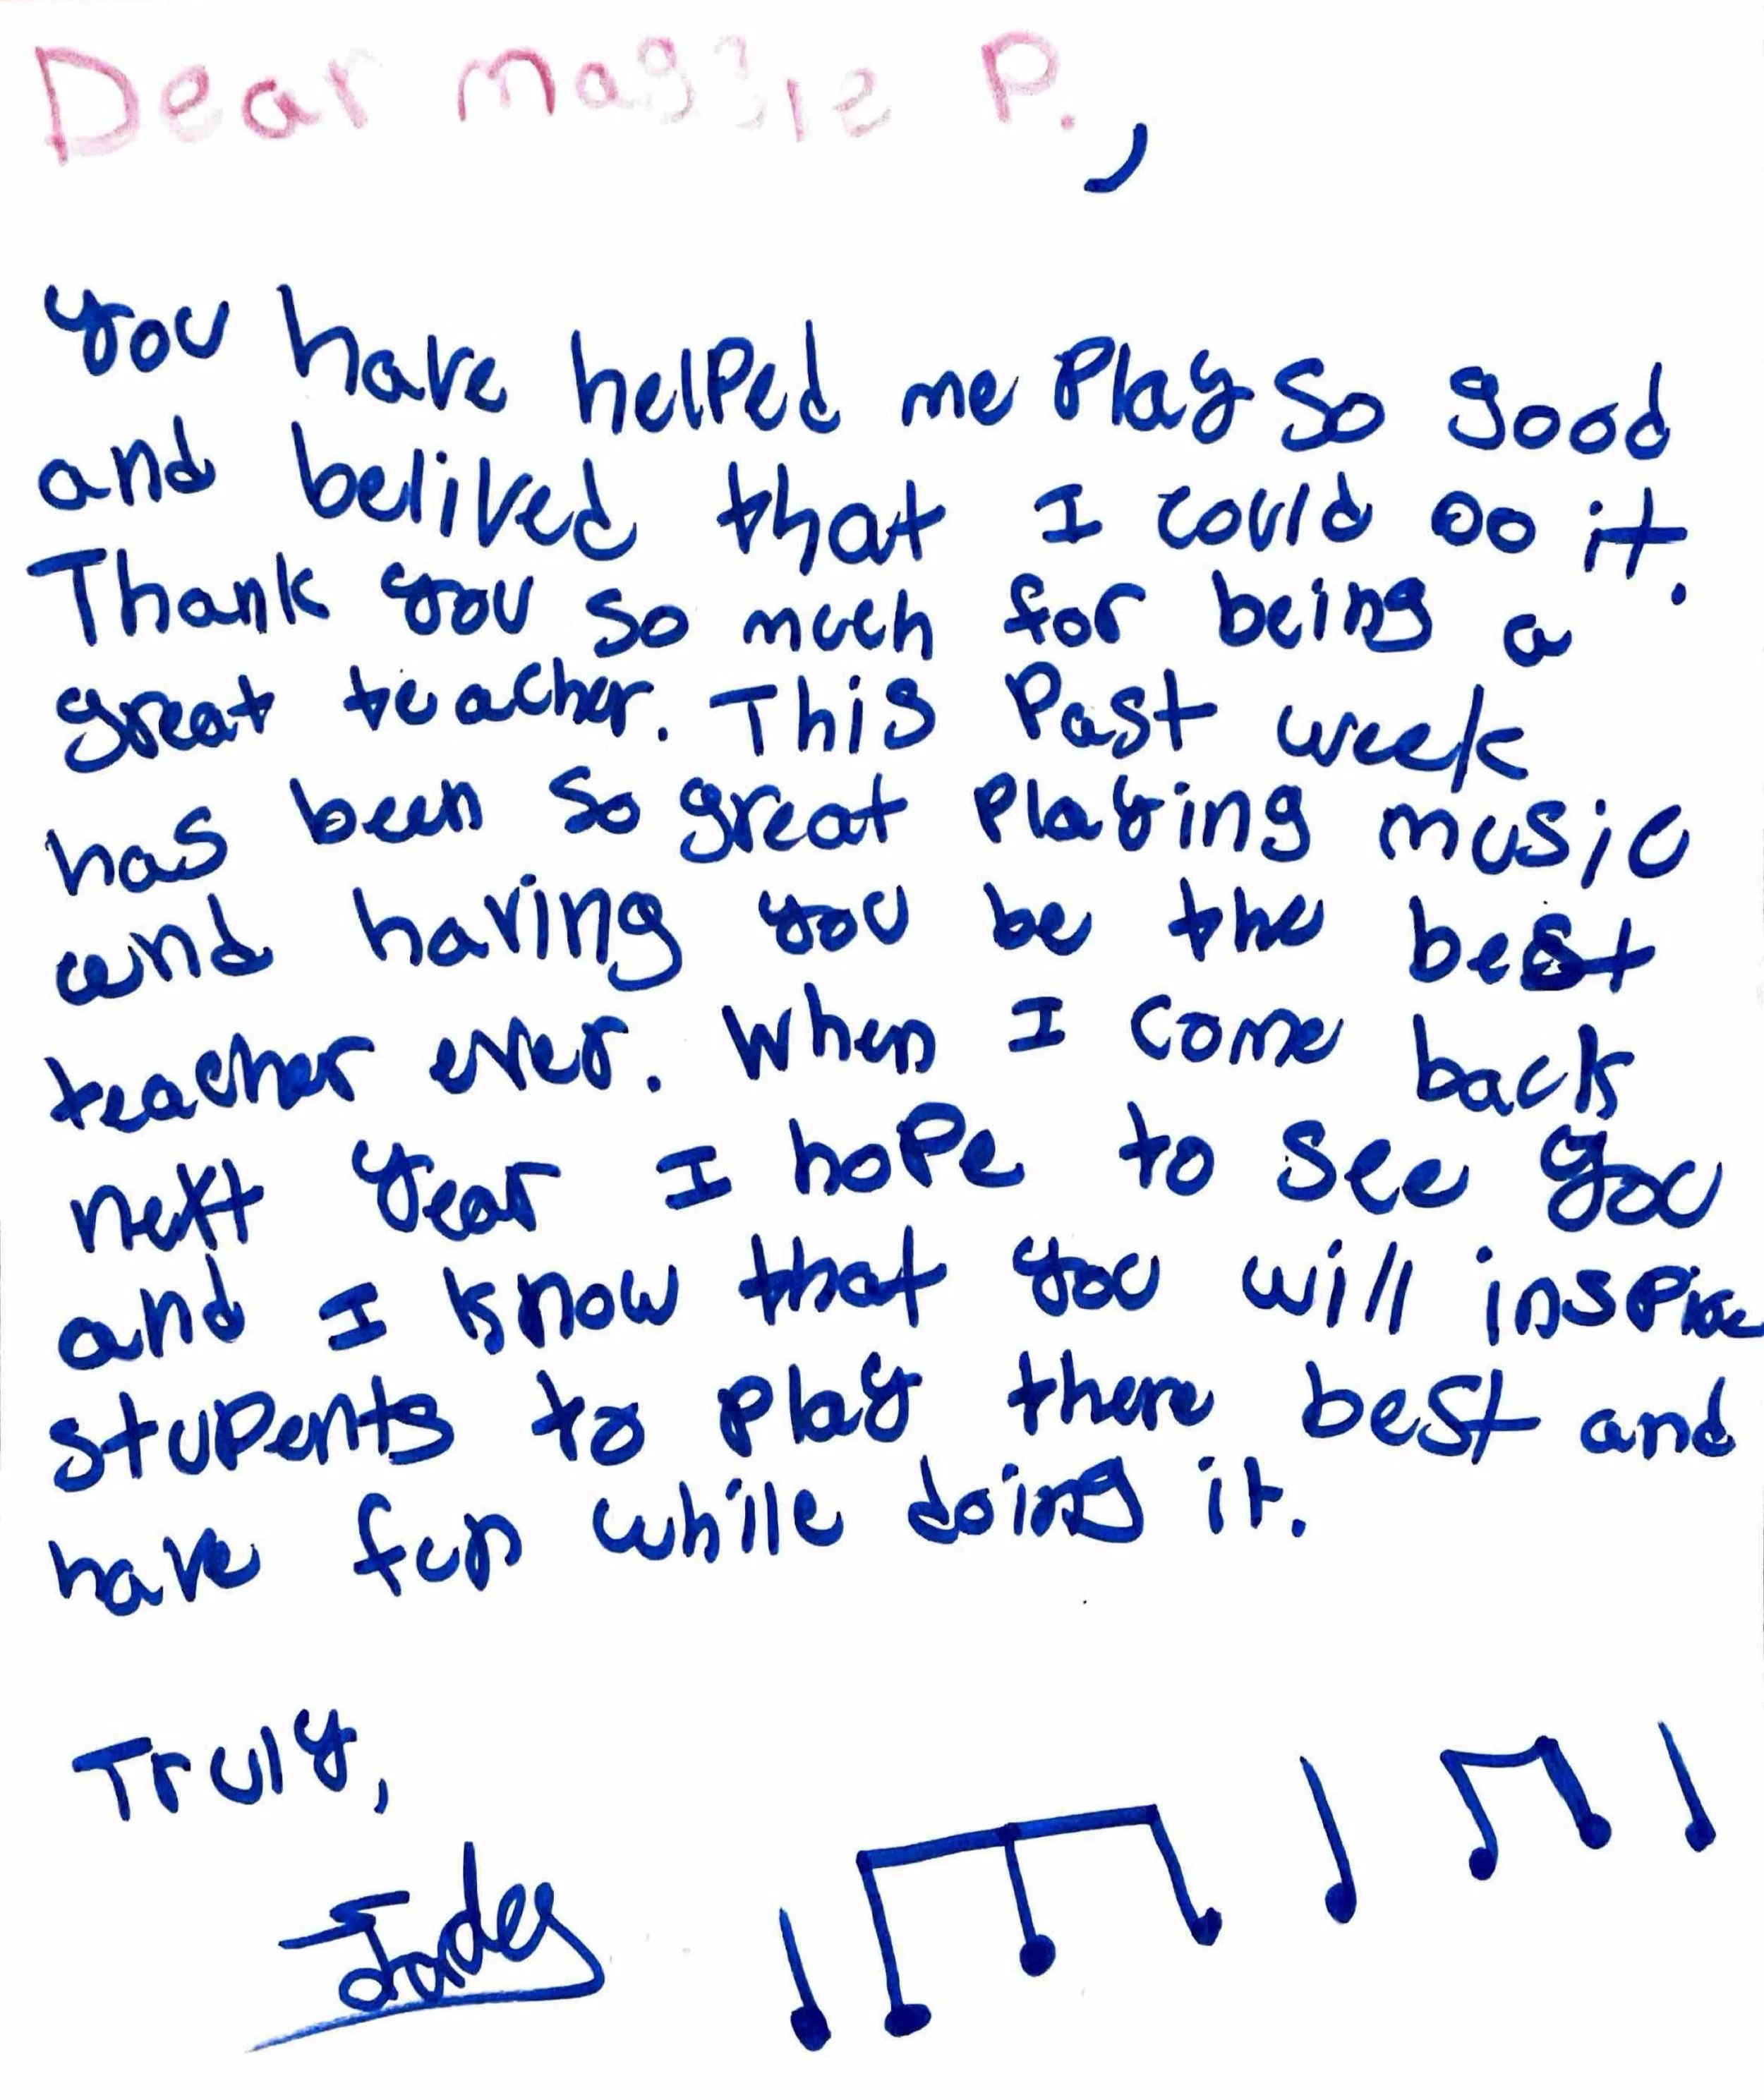 Dear Maggie P.,
You have helped me Play so good
and belived that I could do it.
Thank you so much for being a
great teacher. This Past week
has been so great Playing music
and having you be the best
teacher ever. When I come back
next year I hope to see you
and I know that you will inspire
stupents to play there best and
have fun while doing it.
Truly,